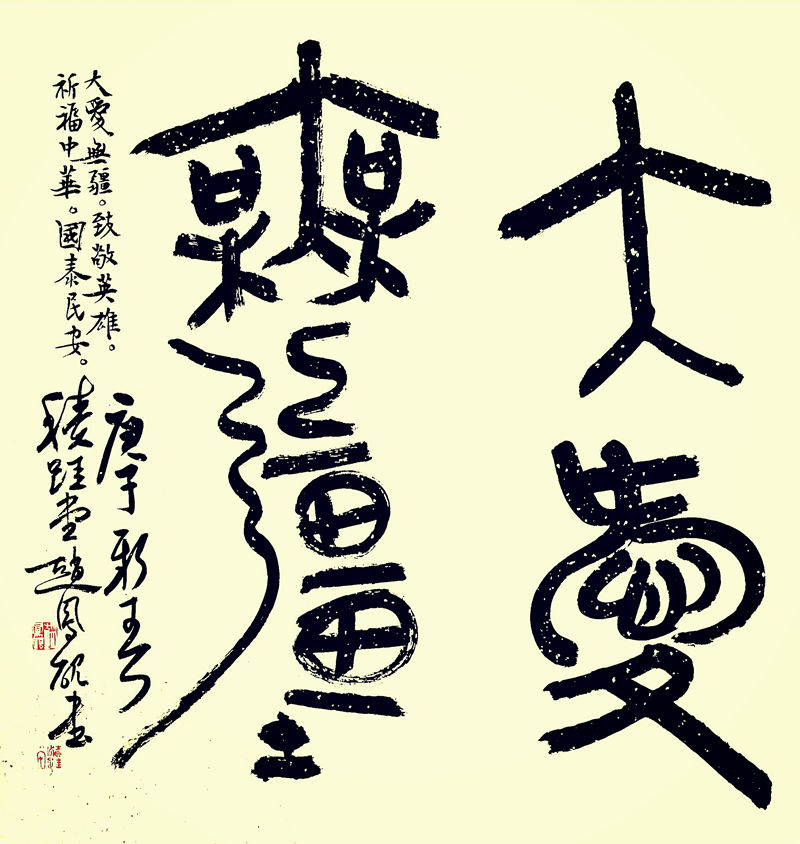 大愛
無疆
大愛無疆。致敬英雄。
祈福中華。國泰民安。
庚子新春
積跬堂趙鳳硯書